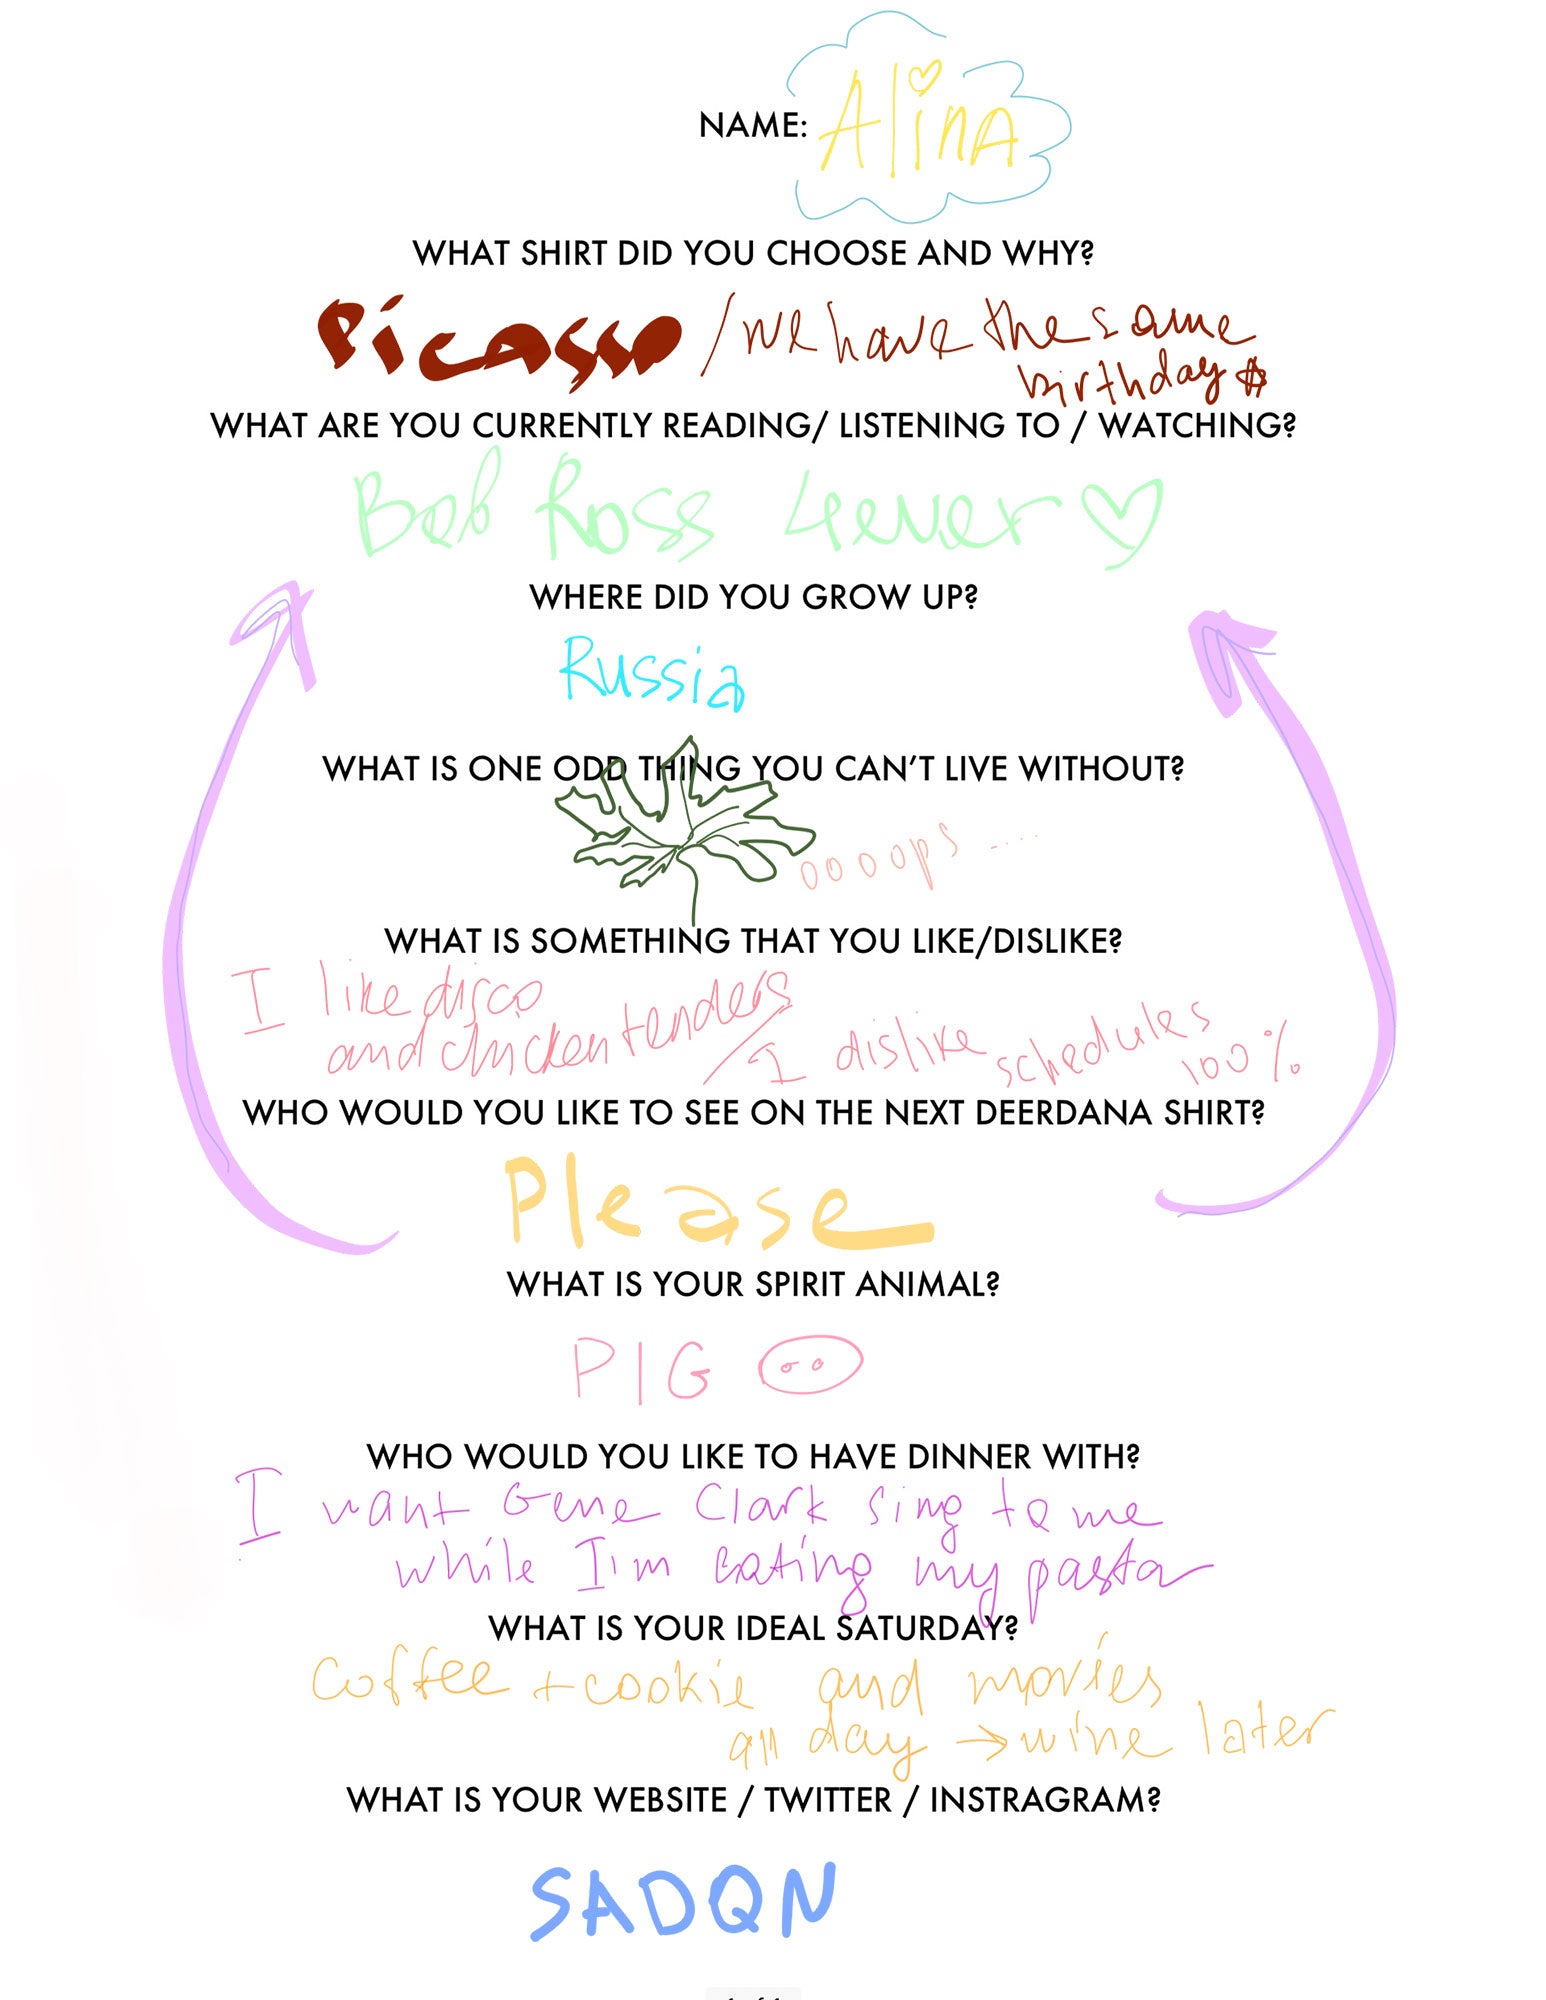 NAME: Alina
WHAT SHIRT DID YOU CHOOSE AND WHY?
Picasso / we have the same
birthday
WHAT ARE YOU CURRENTLY READING/ LISTENING TO / WATCHING?
Bob Ross 4ever
WHERE DID YOU GROW UP?
Russia
WHAT IS ONE ODD THING YOU CAN'T LIVE WITHOUT?
oooops ....
WHAT IS SOMETHING THAT YOU LIKE/DISLIKE?
I like disco
and chicken tenders
/ I dislike schedules
100%
WHO WOULD YOU LIKE TO SEE ON THE NEXT DEERDANA SHIRT?
Please
WHAT IS YOUR SPIRIT ANIMAL?
PIG
WHO WOULD YOU LIKE TO HAVE DINNER WITH?
I want Gene Clark sing to me
while I'm eating my pasta
WHAT IS YOUR IDEAL SATURDAY?
Coffee + cookie and movies
all day → wine later
WHAT IS YOUR WEBSITE / TWITTER / INSTRAGRAM?
SADQN